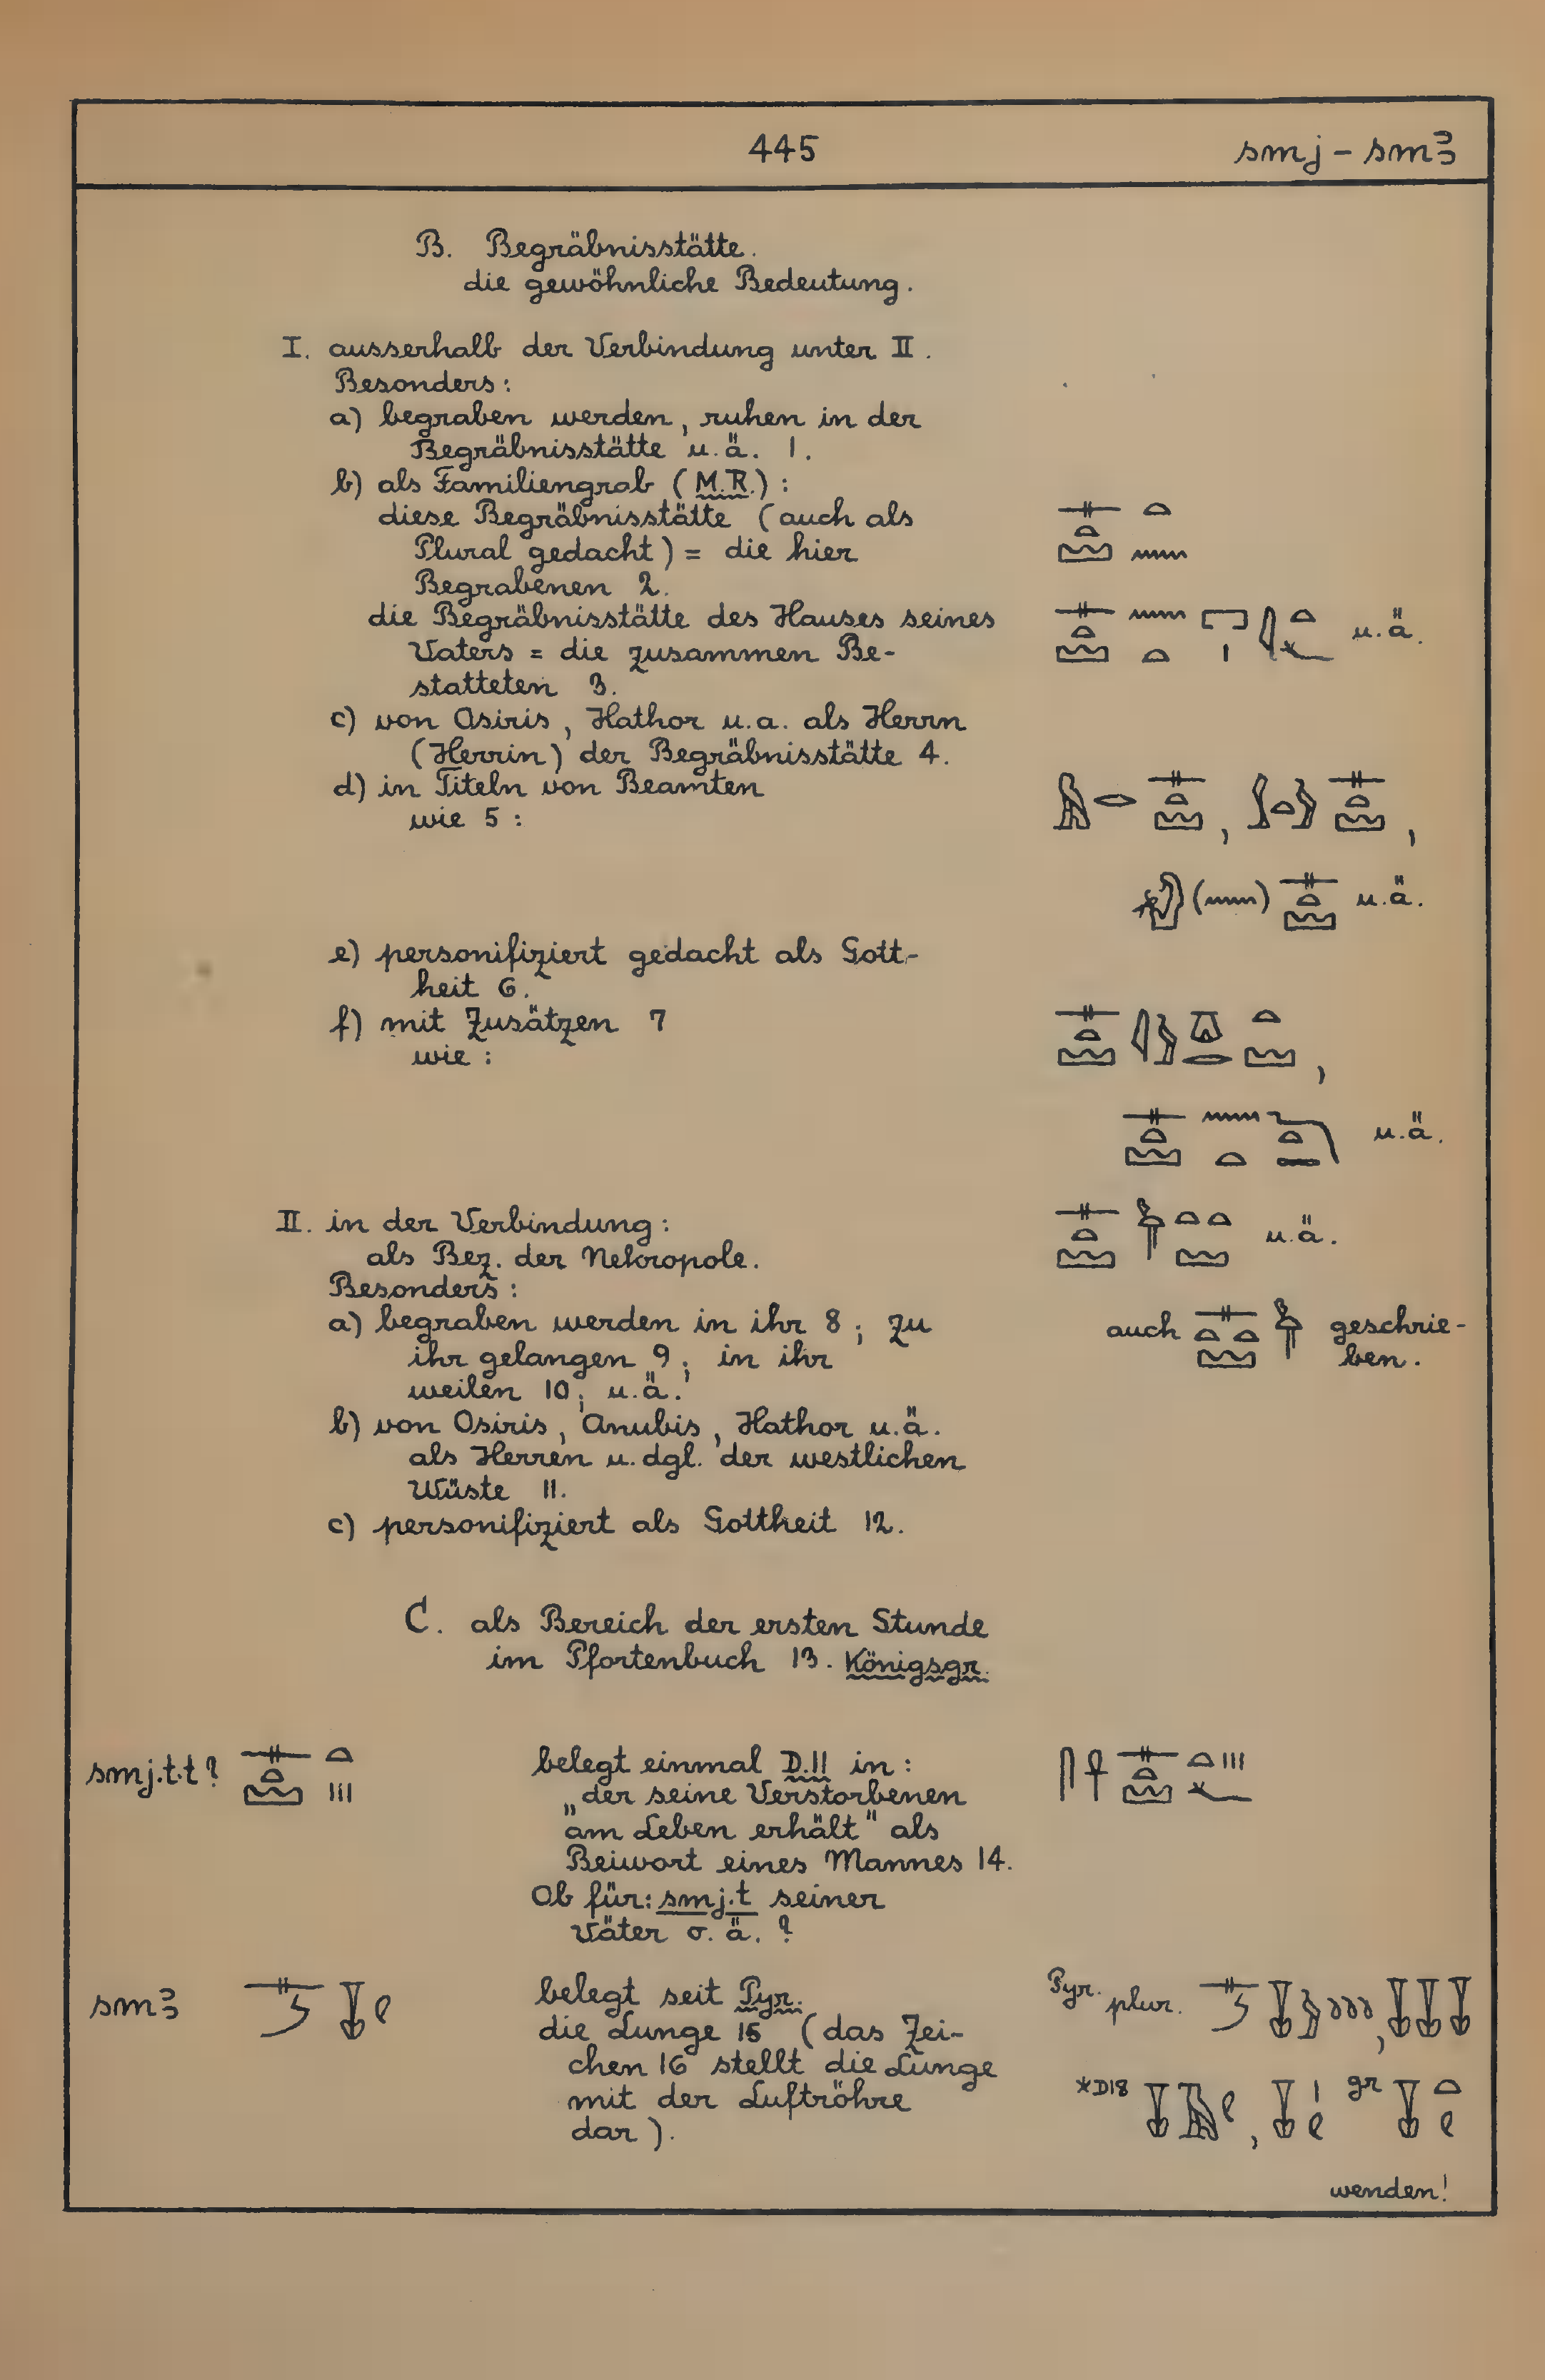 445
smj – smꜣ
B. Begräbnisstätte.
die gewöhnliche Bedeutung.
I. ausserhalb der Verbindung unter II.
Besonders:
a) begraben werden, ruhen in der
Begräbnisstätte u.ä. 1.
b) als Familiengrab (M.R.):
diese Begräbnisstätte (auch als
Plural gedacht) = die hier
Begrabenen 2.
die Begräbnisstätte des Hauses seines
u.ä.
Vaters = die zusammen Be-
statteten 3.
c) von Osiris, Hathor u.a. als Herrn
(Herrin) der Begräbnisstätte 4.
d) in Titeln von Beamten
wie 5:
u.ä.
e) personifiziert gedacht als Gott-
heit 6.
f) mit Zusätzen 7
wie:
u.ä.
II. in der Verbindung:
u.ä.
als Bez. der Nekropole.
Besonders:
a) begraben werden in ihr 8; zu
auch geschrie-
ihr gelangen 9; in ihr
ben.
weilen 10; u.ä.
b) von Osiris, Anubis, Hathor u.ä.
als Herren u. dgl. der westlichen
Wüste 11.
c) personifiziert als Gottheit 12.
C. als Bereich der ersten Stunde
im Pfortenbuch 13. Königsgr.
smj.t.t?
belegt einmal D.II in:
„der seine Verstorbenen
am Leben erhält" als
Beiwort eines Mannes 14.
Ob für: smj.t seiner
Väter o.ä.?
smꜣ
belegt seit Pyr.
Pyr. plur.
die Lunge 15 (das Zei-
chen 16 stellt die Lunge
mit der Luftröhre
*D18 gr
dar).
wenden!